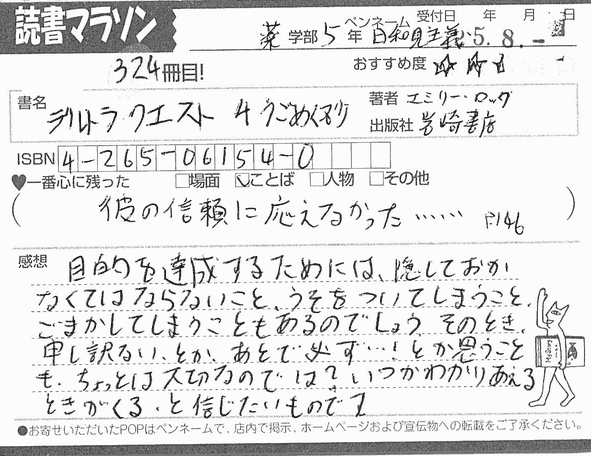 読書マラソン
ペンネーム 受付日 年 月 日
薬 学部 5 年 日和見主義 5.8.
324冊目!
おすすめ度 ☆☆
書名 デルトラ・クエスト 4 うごめく砂
著者 エミリー・ロッダ
出版社 岩崎書店
ISBN 4-265-06154-0
♥一番心に残った □場面 ☑ことば □人物 □その他
( 彼の信頼に応えなかった…… P146 )
感想 目的を達成するためには、隠しておか
なくてはならないこと、うそをついてしまうこと、
ごまかしてしまうこともあるのでしょう。そのとき、
申し訳ない、とか、あとで必ず…!とか思うこと
も、ちょっとは大切なのでは?いつかわかりあえる
ときがくる、と信じたいものです
●お寄せいただいたPOPはペンネームで、店内で掲示、ホームページおよび宣伝物への転載をご了承ください。